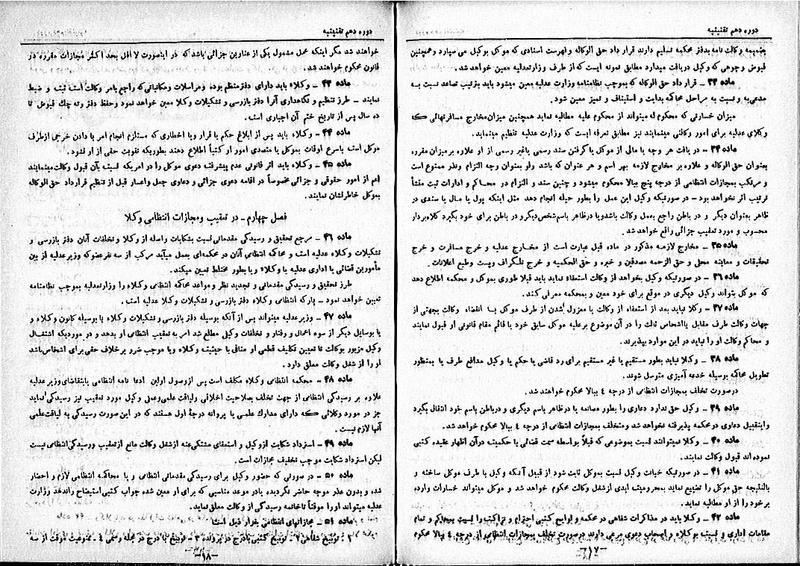 دوره دهم تقنینیه
بضمیمه وکالت نامه بدفتر محکمه تسلیم دارند قرار داد حق الوکاله و فهرست اسنادی که موکل بوکیل می سپارد و همچنین
قبوض وجوهی که وکیل دریافت میدارد مطابق نمونه ایست که از طرف وزارت عدلیه معین خواهد شد.
ماده ۳۳ - قرار داد حق الوکاله که بموجب نظامنامه وزارت عدلیه معین میشود باید بترتیب تصاعد نسبت به
مدعی به و نسبت به مراحل محاکم بدایت و استیناف و تمیز معین شود.
میزان خسارتی که محکوم له میتواند از محکوم علیه مطالبه نماید همچنین میزان مخارج مسافرتهائی که
وکلای عدلیه برای امور وکالتی مینمایند نیز مطابق تعرفه ایست که وزارت عدلیه تنظیم مینماید.
ماده ۳۴ - دریافت هر وجه یا مالی از موکل یا گرفتن سند رسمی یا غیر رسمی از او علاوه بر میزان مقرره
بعنوان حق الوکاله و علاوه بر مخارج لازمه بهر اسم و هر عنوان که باشد ولو بعنوان وجه التزام و نذر ممنوع است
و مرتکب بمجازات انتظامی از درجه پنج ببالا محکوم میشود و چنین سند و التزام در محاکم و ادارات ثبت منشأ
ترتیب اثر نخواهد بود - در صورتیکه وکیل این عمل را بطور حیله انجام دهد مثل اینکه پول یا مال یا سندی در
ظاهر بعنوان دیگر و در باطن راجع بعمل وکالت باشد و یا در ظاهر باسم شخص دیگر و در باطن برای خود بگیرد کلاه بردار
محسوب و مورد تعقیب جزائی واقع خواهد شد.
ماده ۳۵ - مخارج لازمه مذکوره در ماده قبل عبارت است از مخارج عدلیه و خرج مسافرت و خرج
تحقیقات و معاینه محل و حق الزحمه مصدقین و خبره و حق الحکمیه و خرج تلگراف و پست و طبع اعلانات
ماده ۳۶ - در صورتیکه وکیل بخواهد از وکالت استعفاء نماید باید قبلا طوری بموکل و محکمه اطلاع دهد
که موکل بتواند وکیل دیگری در موقع برای خود معین و بمحکمه معرفی کند.
ماده ۳۷ - وکلا نباید بعد از استعفاء از وکالت یا معزول شدن از طرف موکل یا انقضاء وکالت بجهتی از
جهات وکالت طرف مقابل یا اشخاص ثالث را در آن موضوع بر علیه موکل سابق خود یا قائم مقام قانونی او قبول نمایند
و محاکم وکالت او را نباید در این موارد بپذیرند.
ماده ۳۸ - وکلا نباید بطور مستقیم یا غیر مستقیم برای رد قاضی یا حکم یا وکیل مدافع طرف یا بمنظور
تطویل محاکمه بوسیله خدعه آمیزی متوسل شوند.
در صورت تخلف بمجازات انتظامی از درجه ۴ ببالا محکوم خواهند شد.
ماده ۳۹ - وکیل حق ندارد دعاوی را بطور مصانعه یا در ظاهر باسم دیگری و در باطن باسم خود انتقال بگیرد
و اینقبیل دعاوی در محکمه پذیرفته نخواهد شد و متخلف بمجازات انتظامی از درجه ۴ ببالا محکوم خواهد شد.
ماده ۴۰ - وکلا نمیتوانند نسبت بموضوعی که قبلا بواسطه سمت قضائی یا حکمیت در آن اظهار عقیده کتبی
نموده اند قبول وکالت نمایند.
ماده ۴۱ - در صورتیکه خیانت وکیل نسبت بموکل ثابت شود از قبیل آنکه وکیل با طرف موکل ساخته و
بالنتیجه حق موکل را تضییع نماید بمحرومیت ابدی از شغل وکالت محکوم خواهد شد و موکل میتواند خسارات وارده
بر خود را از او مطالبه نماید.
ماده ۴۲ - وکلا باید در مذاکرات شفاهی در محکمه و لوایح کتبی احترام و نزاکت را نسبت بمحاکم و تمام
مقامات اداری و نسبت بوکلاء و اصحاب دعوی مرعی دارند در صورت تخلف بمجازات انتظامی از درجه ۴ ببالا محکوم
- ۶۱۷ -
دوره دهم تقنینیه
خواهند شد مگر اینکه عمل مشمول یکی از عناوین جزائی باشد که در اینصورت لااقل بحد اکثر مجازات مقرره در
قانون محکوم خواهند شد.
ماده ۴۳ - وکلاء باید دارای دفتر منظم بوده و مراسلات و مکاتباتی که راجع بامر وکالت است ثبت و ضبط
نمایند - طرز تنظیم و نگاهداری آنرا دفتر بازرسی و تشکیلات وکلاء معین خواهد نمود و حفظ دفتر و ته چک قبوض تا
ده سال پس از تاریخ ختم آن اجباری است.
ماده ۴۴ - وکلاء باید پس از ابلاغ حکم یا قرار و یا اخطاری که مستلزم انجام امر یا دادن خرجی از طرف
موکل است باسرع اوقات بموکل یا متصدی امور او کتباً اطلاع دهند بطوریکه تفویت حقی از او نشود.
ماده ۴۵ - وکلاء باید اثر قانونی عدم پیشرفت دعوی موکل را در امری که نسبت بآن قبول وکالت مینمایند
اعم از امور حقوقی و جزائی خصوصاً در اقامه دعوی جزائی و دعاوی جعل و اعسار قبل از تنظیم قرارداد حق الوکاله
بموکل خاطرنشان نمایند.
فصل چهارم - در تعقیب و مجازات انتظامی وکلا
ماده ۴۶ - مرجع تحقیق و رسیدگی مقدماتی نسبت بشکایات واصله از وکلا و تخلفات آنان دفتر بازرسی و
تشکیلات وکلاء عدلیه است و محاکمه انتظامی آنان در محکمه‌ای بعمل میآید مرکب از سه نفر عضو که وزیر عدلیه از بین
مأمورین قضائی یا اداری عدلیه یا وکلاء و یا بطور مختلط تعیین میکند.
طرز تحقیق و رسیدگی مقدماتی و تجدید نظر و مواعد محاکمه انتظامی وکلاء را وزارت عدلیه بموجب نظامنامه
تعیین خواهد نمود - پارکه انتظامی وکلاء دفتر بازرسی و تشکیلات وکلا عدلیه است.
ماده ۴۷ - وزیر عدلیه میتواند پس از آنکه بوسیله دفتر بازرسی و تشکیلات وکلاء یا بوسیله کانون وکلاء و
یا بوسایل دیگر از سوء اعمال و رفتار و تخلفات وکیل مطلع شد امر به تعقیب انتظامی او بدهد و در موردیکه اشتغال
وکیل مزبور بوکالت تا تعیین تکلیف قطعی او منافی با حیثیت وکلاء و یا موجب ضرر بر خلاف حقی برای اشخاص باشد
او را از شغل وکالت معلق دارد.
ماده ۴۸ - محکمه انتظامی وکلاء مکلف است پس از وصول اولین ادعا نامه انتظامی یا بتقاضای وزیر عدلیه
علاوه بر رسیدگی انتظامی از جهت تخلف بصلاحیت اخلاقی و لیاقت علمی و عملی وکیل مورد تعقیب نیز رسیدگی نماید
جز در مورد وکلائی که دارای مدارک علمی یا پروانه درجه اول هستند که در این صورت رسیدگی به لیاقت علمی
آنها لازم نیست.
ماده ۴۹ - استرداد شکایت از وکیل و استعفای مشتکی عنه از شغل وکالت مانع از تعقیب و رسیدگی انتظامی نیست
لیکن استرداد شکایت موجب تخفیف مجازات است.
ماده ۵۰ - در صورتی که حضور وکیل برای رسیدگی مقدماتی انتظامی و یا محاکمه انتظامی لازم و احضار
شده و بدون عذر موجه حاضر نگردیده یا در موعد مناسبی که برای او معین شده جواب کتبی استیضاح را ندهد وزارت
عدلیه میتواند او را موقتاً تا خاتمه رسیدگی از وکالت معلق نماید.
ماده ۵۱ - مجازاتهای انتظامی بقرار ذیل است
۱ - توبیخ شفاهی ۲ - توبیخ کتبی با درج در پرونده ۳ - توبیخ با درج در مجله رسمی ۴ - ممنوعیت موقت از سه
- ۶۱۸ -